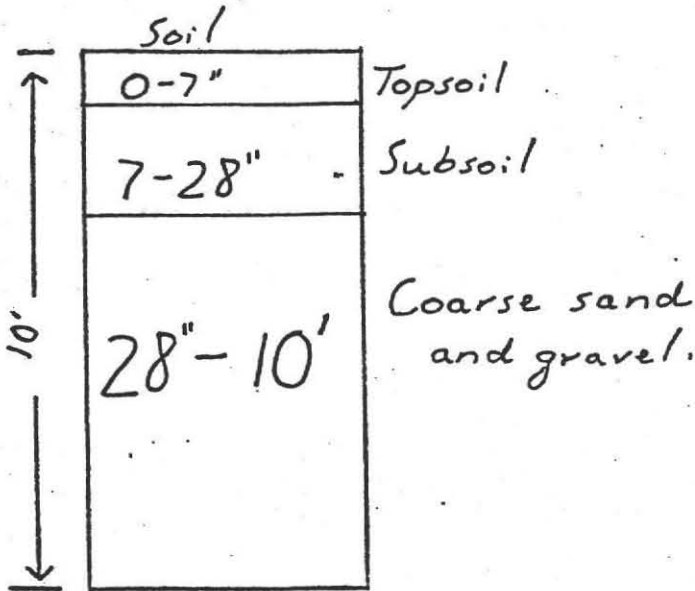 Soil
0-7" Topsoil
7-28" Subsoil
10'
28"-10'
Coarse sand
and gravel.